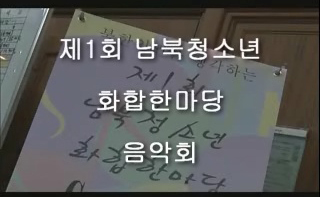 제1회 남북청소년
화합한마당
음악회
제1회
남북청소년
화합한마당